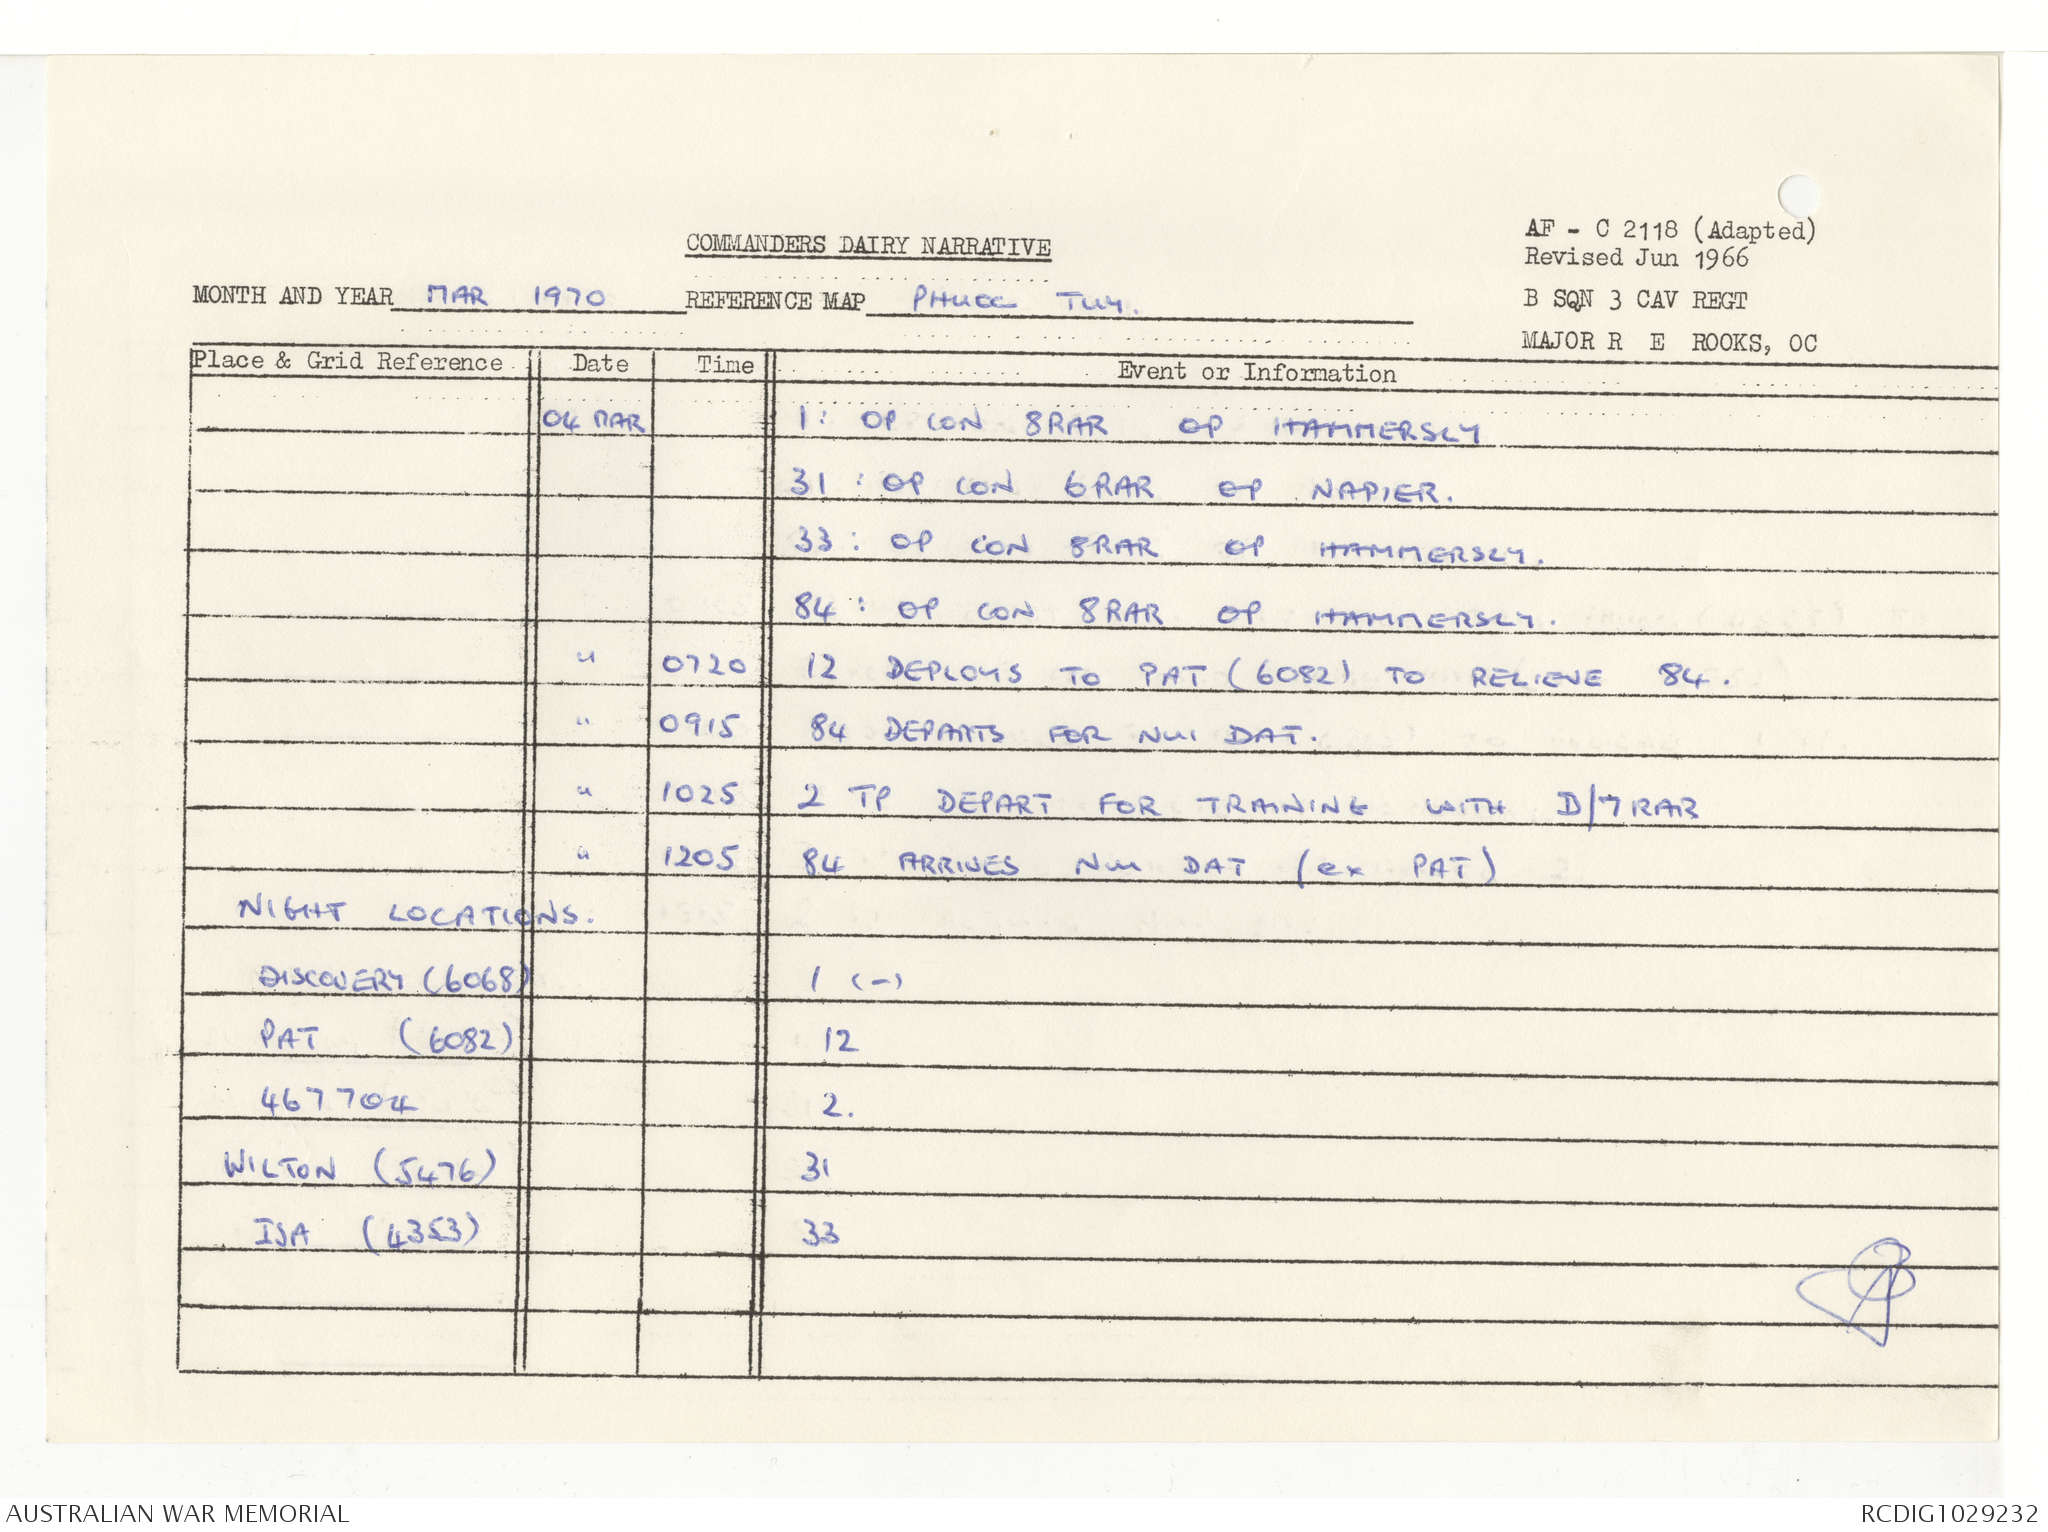 AF - C 2118 (Adapted)
COMMANDERS DAIRY NARRATIVE
Revised Jun 1966
MONTH AND YEAR MAR 1970 REFERENCE MAP PHUOC TUY.
B SQN 3 CAV REGT
MAJOR R E ROOKS, OC
Place & Grid Reference Date Time Event or Information
04 MAR 1: OP CON 8RAR OP HAMMERSLY
31: OP CON 6RAR OP NAPIER.
33: OP CON 8RAR OP HAMMERSLY.
84: OP CON 8RAR OP HAMMERSLY.
" 0720 12 DEPLOYS TO PAT (6082) TO RELIEVE 84.
" 0915 84 DEPARTS FOR NUI DAT.
" 1025 2 TP DEPART FOR TRAINING WITH D/7RAR
" 1205 84 ARRIVES NUI DAT (ex PAT)
NIGHT LOCATIONS.
DISCOVERY (6068) 1 (-)
PAT (6082) 12
467704 2.
WILTON (5476) 31
ISA (4353) 33
AUSTRALIAN WAR MEMORIAL
RCDIG1029232